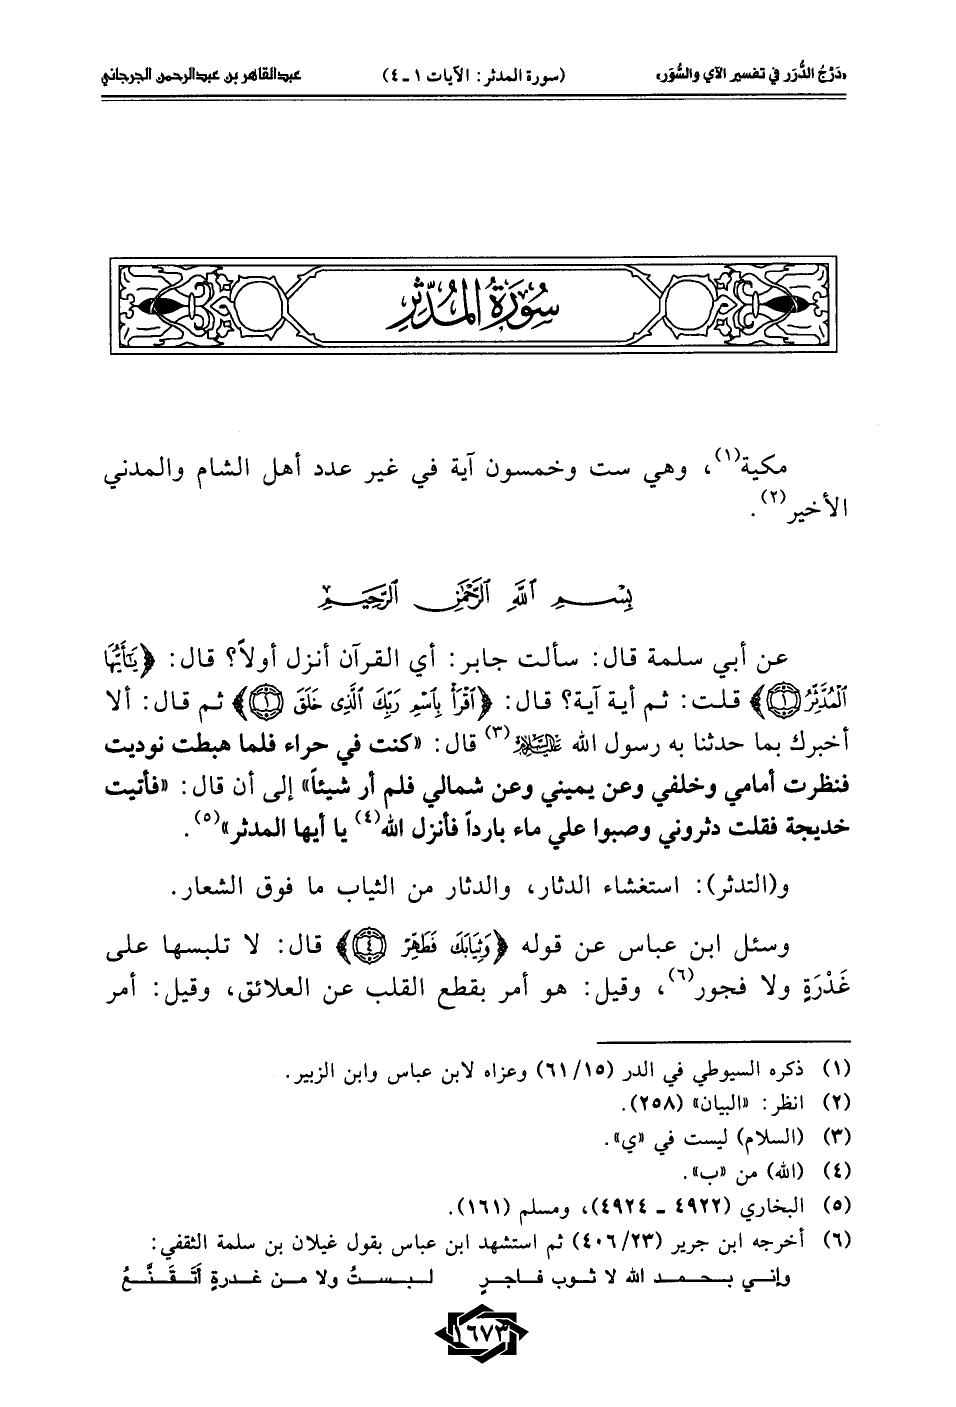 «دَرْجُ الدُّرَر في تفسير الآي والسُّوَر» (سورة المدثر: الآيات ١ ـ ٤) عبدالقاهر بن عبدالرحمن الجرجاني
سُورَةُ المُدَّثِّر
مكية(١)، وهي ست وخمسون آية في غير عدد أهل الشام والمدني
الأخير(٢).
بِسْمِ اللَّهِ الرَّحْمَٰنِ الرَّحِيمِ
عن أبي سلمة قال: سألت جابر: أي القرآن أنزل أولاً؟ قال: ﴿يَٰٓأَيُّهَا
ٱلْمُدَّثِّرُ ١﴾ قلت: ثم أية آية؟ قال: ﴿ٱقْرَأْ بِٱسْمِ رَبِّكَ ٱلَّذِى خَلَقَ ١﴾ ثم قال: ألا
أخبرك بما حدثنا به رسول الله عليه السلام(٣) قال: «كنت في حراء فلما هبطت نوديت
فنظرت أمامي وخلفي وعن يميني وعن شمالي فلم أر شيئاً» إلى أن قال: «فأتيت
خديجة فقلت دثروني وصبوا علي ماء بارداً فأنزل الله(٤) يا أيها المدثر»(٥).
و(التدثر): استغشاء الدثار، والدثار من الثياب ما فوق الشعار.
وسئل ابن عباس عن قوله ﴿وَثِيَابَكَ فَطَهِّرْ ٤﴾ قال: لا تلبسها على
غَدْرَةٍ ولا فجور(٦)، وقيل: هو أمر بقطع القلب عن العلائق، وقيل: أمر
(١) ذكره السيوطي في الدر (٦١/١٥) وعزاه لابن عباس وابن الزبير.
(٢) انظر: «البيان» (٢٥٨).
(٣) (السلام) ليست في «ي».
(٤) (الله) من «ب».
(٥) البخاري (٤٩٢٢ ـ ٤٩٢٤)، ومسلم (١٦١).
(٦) أخرجه ابن جرير (٤٠٦/٢٣) ثم استشهد ابن عباس بقول غيلان بن سلمة الثقفي:
وإني بحمد الله لا ثوب فاجرٍ لبستُ ولا من غدرةٍ أتَقَنَّعُ
١٦٧٣